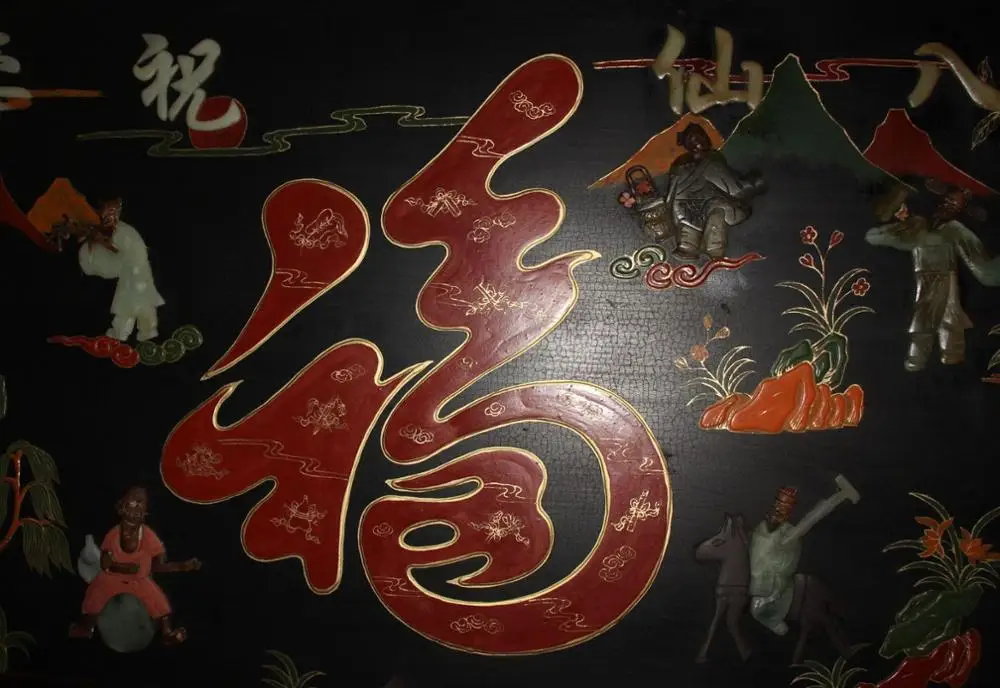 八仙祝
福